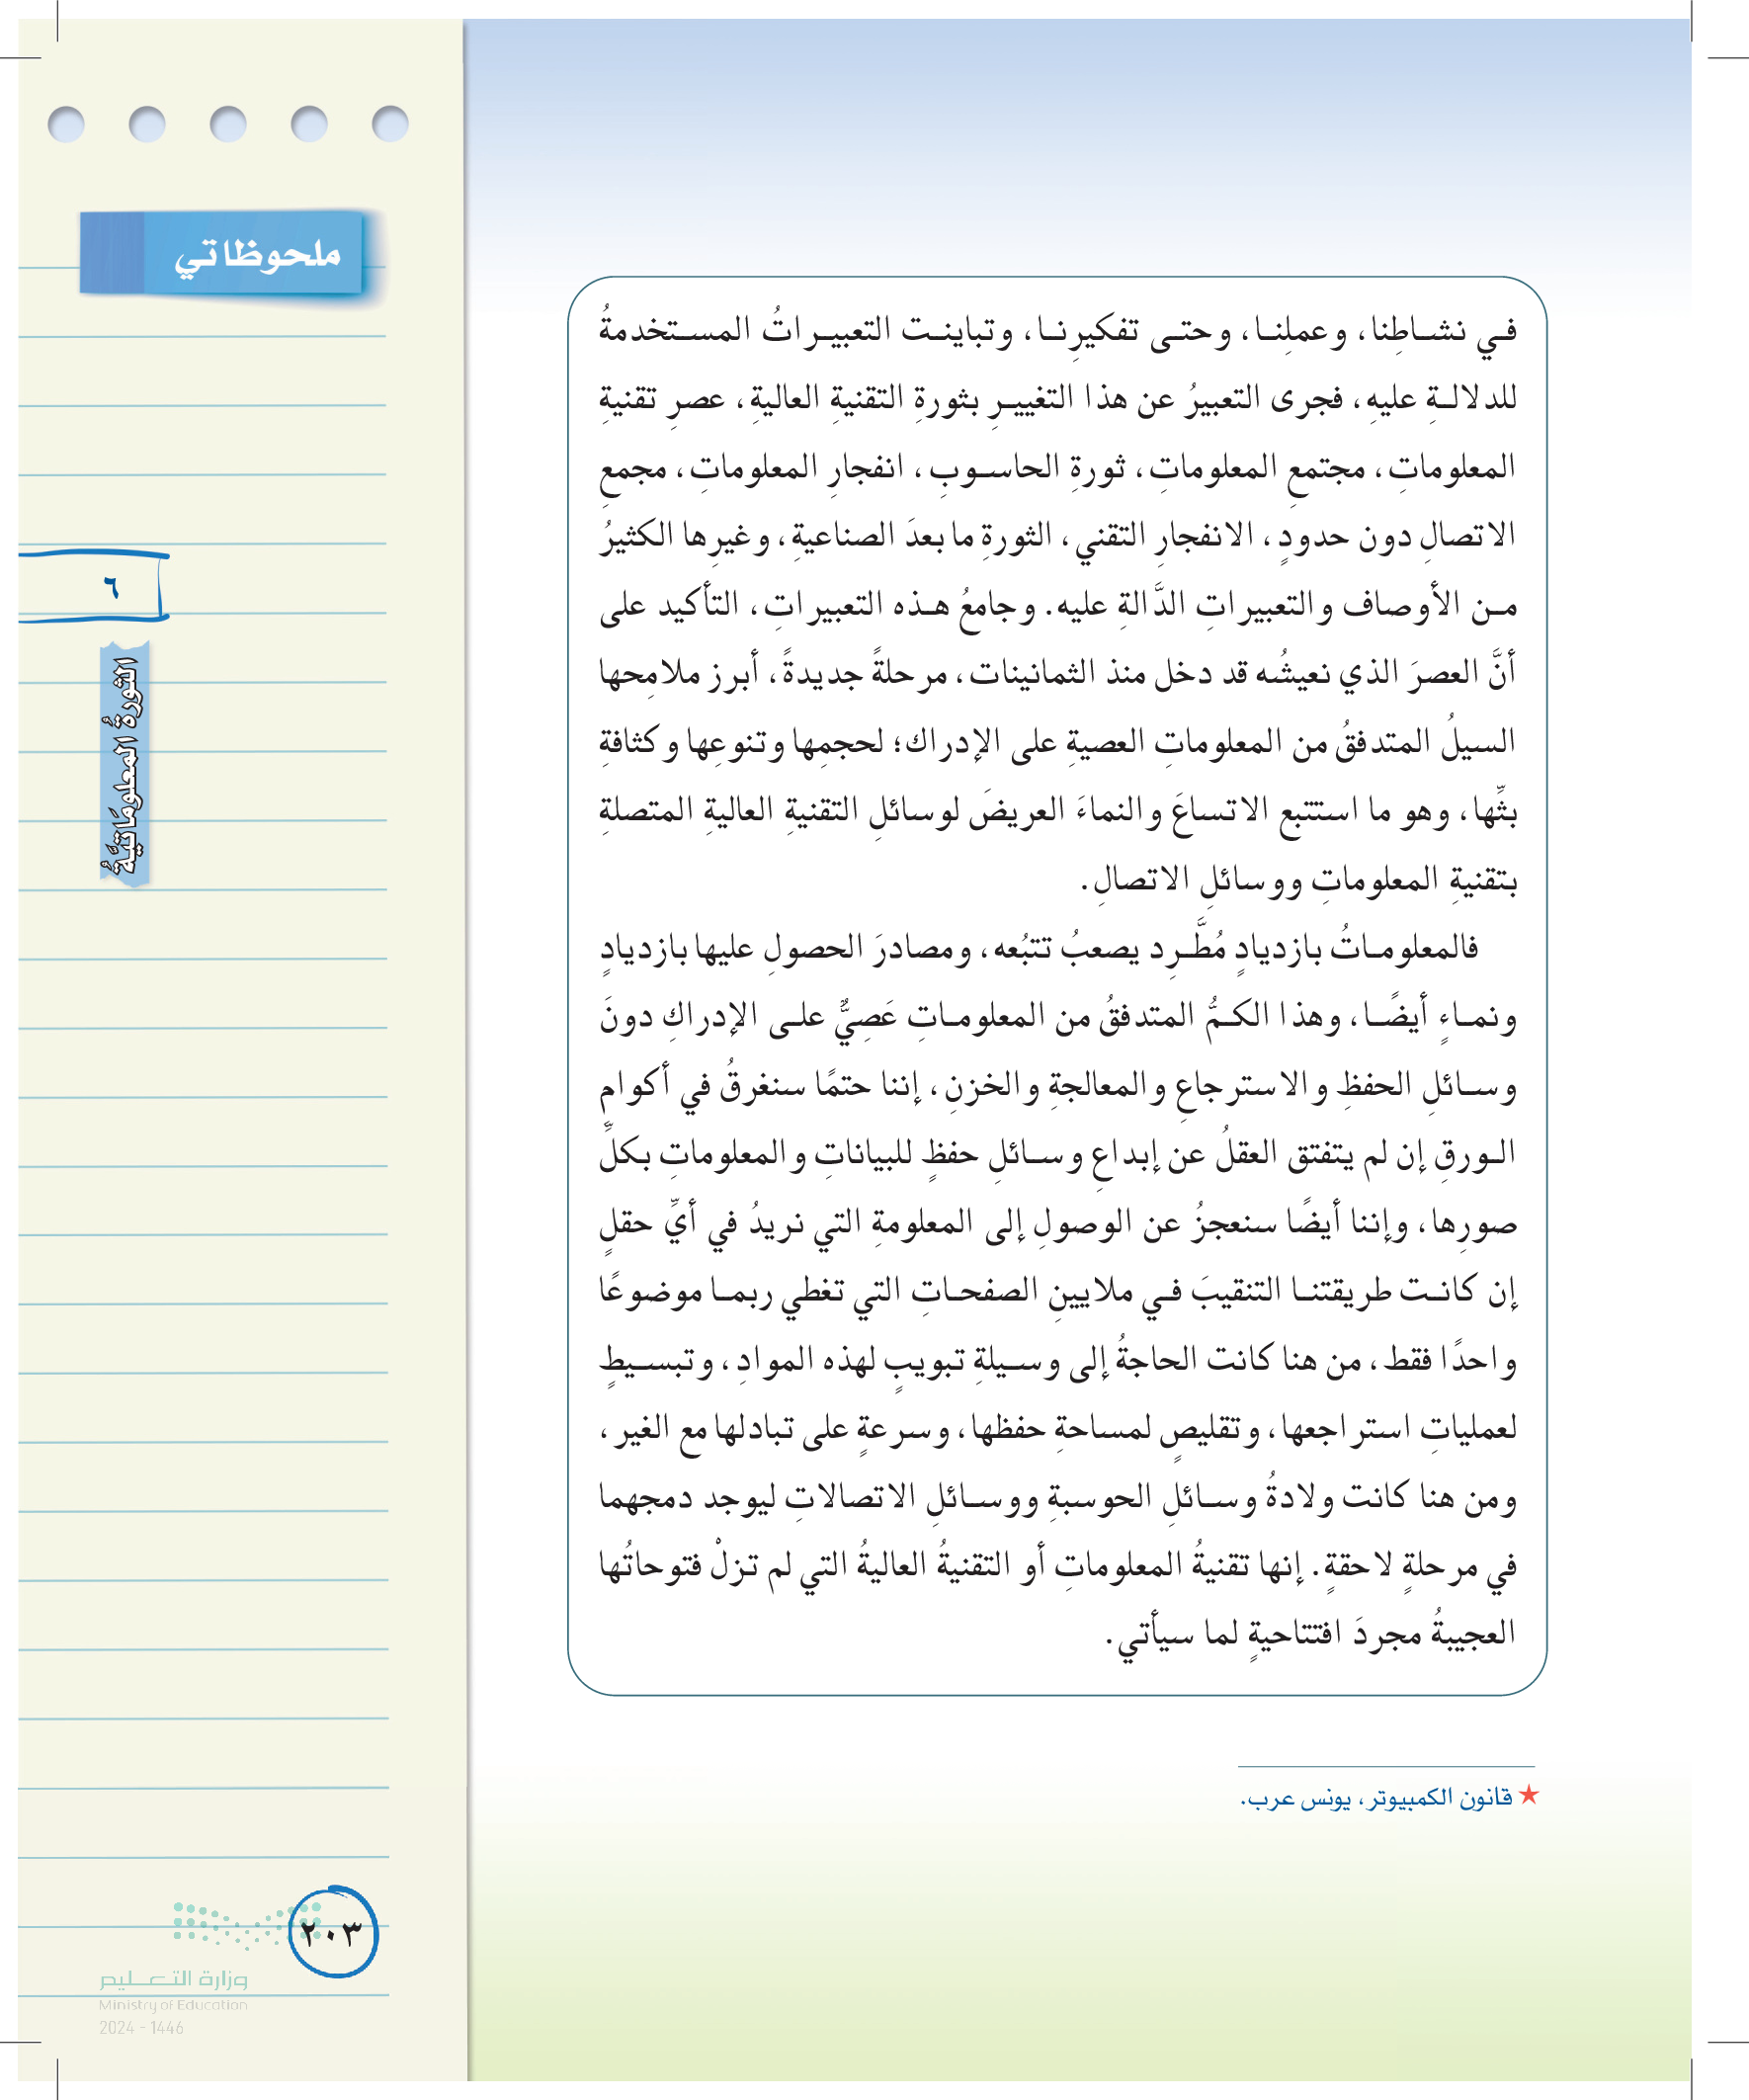 ملحوظاتي
في نشاطِنا، وعملِنا، وحتى تفكيرِنا، وتباينت التعبيراتُ المستخدمةُ
للدلالةِ عليهِ، فجرى التعبيرُ عن هذا التغييرِ بثورةِ التقنيةِ العاليةِ، عصرِ تقنيةِ
المعلوماتِ، مجتمعِ المعلوماتِ، ثورةِ الحاسوبِ، انفجارِ المعلوماتِ، مجمعِ
الاتصالِ دون حدودٍ، الانفجارِ التقني، الثورةِ ما بعدَ الصناعيةِ، وغيرِها الكثيرُ
من الأوصاف والتعبيراتِ الدَّالةِ عليه. وجامعُ هذه التعبيراتِ، التأكيد على
أنَّ العصرَ الذي نعيشُه قد دخل منذ الثمانينات، مرحلةً جديدةً، أبرز ملامِحها
السيلُ المتدفقُ من المعلوماتِ العصيةِ على الإدراك؛ لحجمِها وتنوعِها وكثافةِ
بثِّها، وهو ما استتبع الاتساعَ والنماءَ العريضَ لوسائلِ التقنيةِ العاليةِ المتصلةِ
بتقنيةِ المعلوماتِ ووسائلِ الاتصالِ.
فالمعلوماتُ بازديادٍ مُطَّرِد يصعبُ تتبُعه، ومصادرَ الحصولِ عليها بازديادٍ
ونماءٍ أيضًا، وهذا الكمُّ المتدفقُ من المعلوماتِ عَصِيٌّ على الإدراكِ دونَ
وسائلِ الحفظِ والاسترجاعِ والمعالجةِ والخزنِ، إننا حتمًا سنغرقُ في أكوامِ
الورقِ إن لم يتفتق العقلُ عن إبداعِ وسائلِ حفظٍ للبياناتِ والمعلوماتِ بكلِّ
صورِها، وإننا أيضًا سنعجزُ عن الوصولِ إلى المعلومةِ التي نريدُ في أيِّ حقلٍ
إن كانت طريقتنا التنقيبَ في ملايينِ الصفحاتِ التي تغطي ربما موضوعًا
واحدًا فقط، من هنا كانت الحاجةُ إلى وسيلةِ تبويبٍ لهذه الموادِ، وتبسيطٍ
لعملياتِ استراجعها، وتقليصٍ لمساحةِ حفظها، وسرعةٍ على تبادلها مع الغير،
ومن هنا كانت ولادةُ وسائلِ الحوسبةِ ووسائلِ الاتصالاتِ ليوجد دمجهما
في مرحلةٍ لاحقةٍ. إنها تقنيةُ المعلوماتِ أو التقنيةُ العاليةُ التي لم تزلْ فتوحاتُها
العجيبةُ مجردَ افتتاحيةٍ لما سيأتي.
★ قانون الكمبيوتر، يونس عرب.
٦
الثورةُ المعلومَاتيَّةُ
٢٠٣
وزارة التعليم
Ministry of Education
2024 - 1446